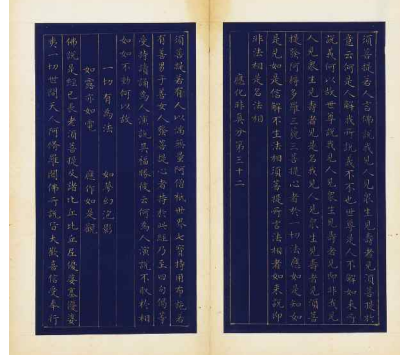 須菩提若人言佛說我見人見眾生見壽者見須菩提於
意云何是人解我所說義不不也世尊是人不解如來所
說義何以故世尊說我見人見眾生見壽者見即非我見
人見眾生見壽者見是名我見人見眾生見壽者見須菩
提發阿耨多羅三藐三菩提心者於一切法應如是知如
是見如是信解不生法相須菩提所言法相者如來說即
非法相是名法相
應化非真分第三十二
須菩提若有人以滿無量阿僧祇世界七寶持用布施若
有善男子善女人發菩提心者持於此經乃至四句偈等
受持讀誦為人演說其福勝彼云何為人演說不取於相
如如不動何以故
一切有為法 如夢幻泡影
如露亦如電 應作如是觀
佛說是經已長老須菩提及諸比丘比丘尼優婆塞優婆
夷一切世間天人阿修羅聞佛所說皆大歡喜信受奉行